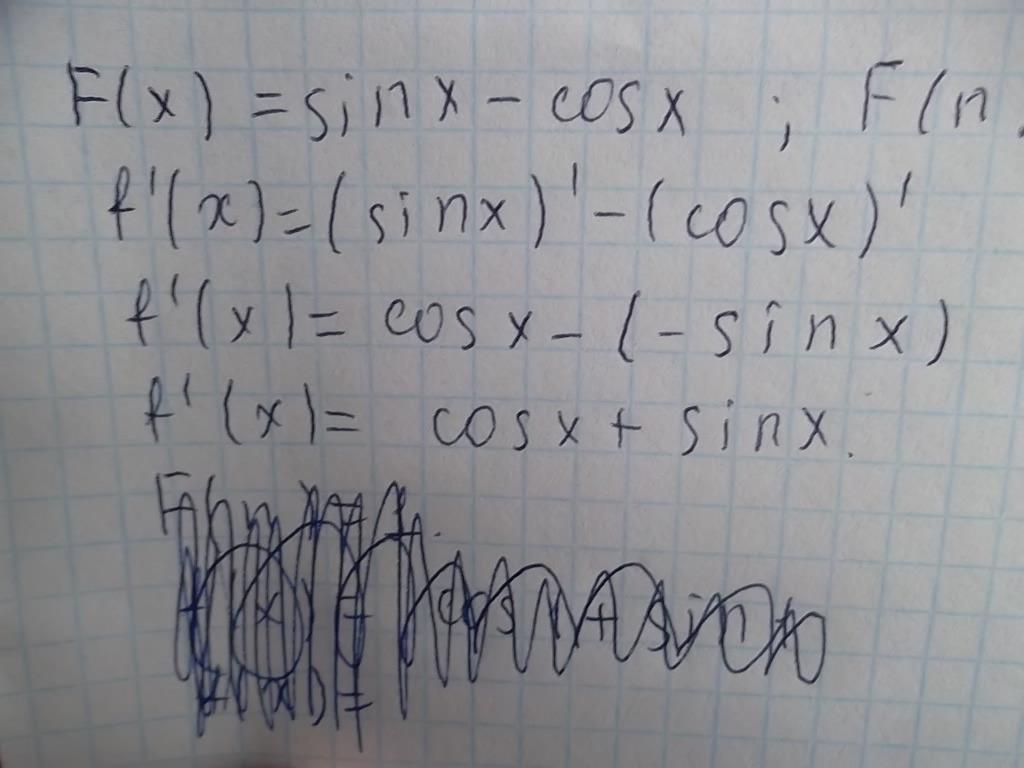 F(x) = sin x - cos x ; F(n
f'(x) = (sin x)' - (cos x)'
f'(x) = cos x - (- sin x)
f'(x) = cos x + sin x.